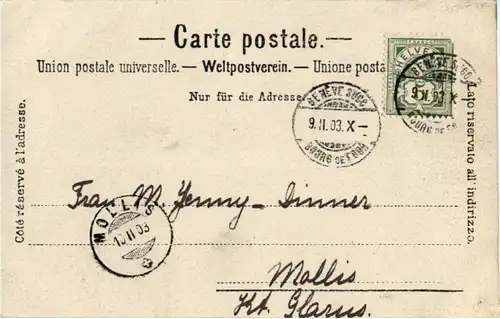 — Carte postale. —
Union postale universelle. — Weltpostverein. — Unione posta
Nur für die Adresse.
Côté réservé à l'adresse.
Lato riservato all'indirizzo.
HELVE
5
GENÈVE SUCC.
9.II.03.X—
BOURG DE FOUR
GENÈVE SUCC.
9.II.03.X—
BOURG DE FOUR
Frau M. Jenny-Dinner
MOLLIS
10 II 03
Mollis
Kt. Glarus.